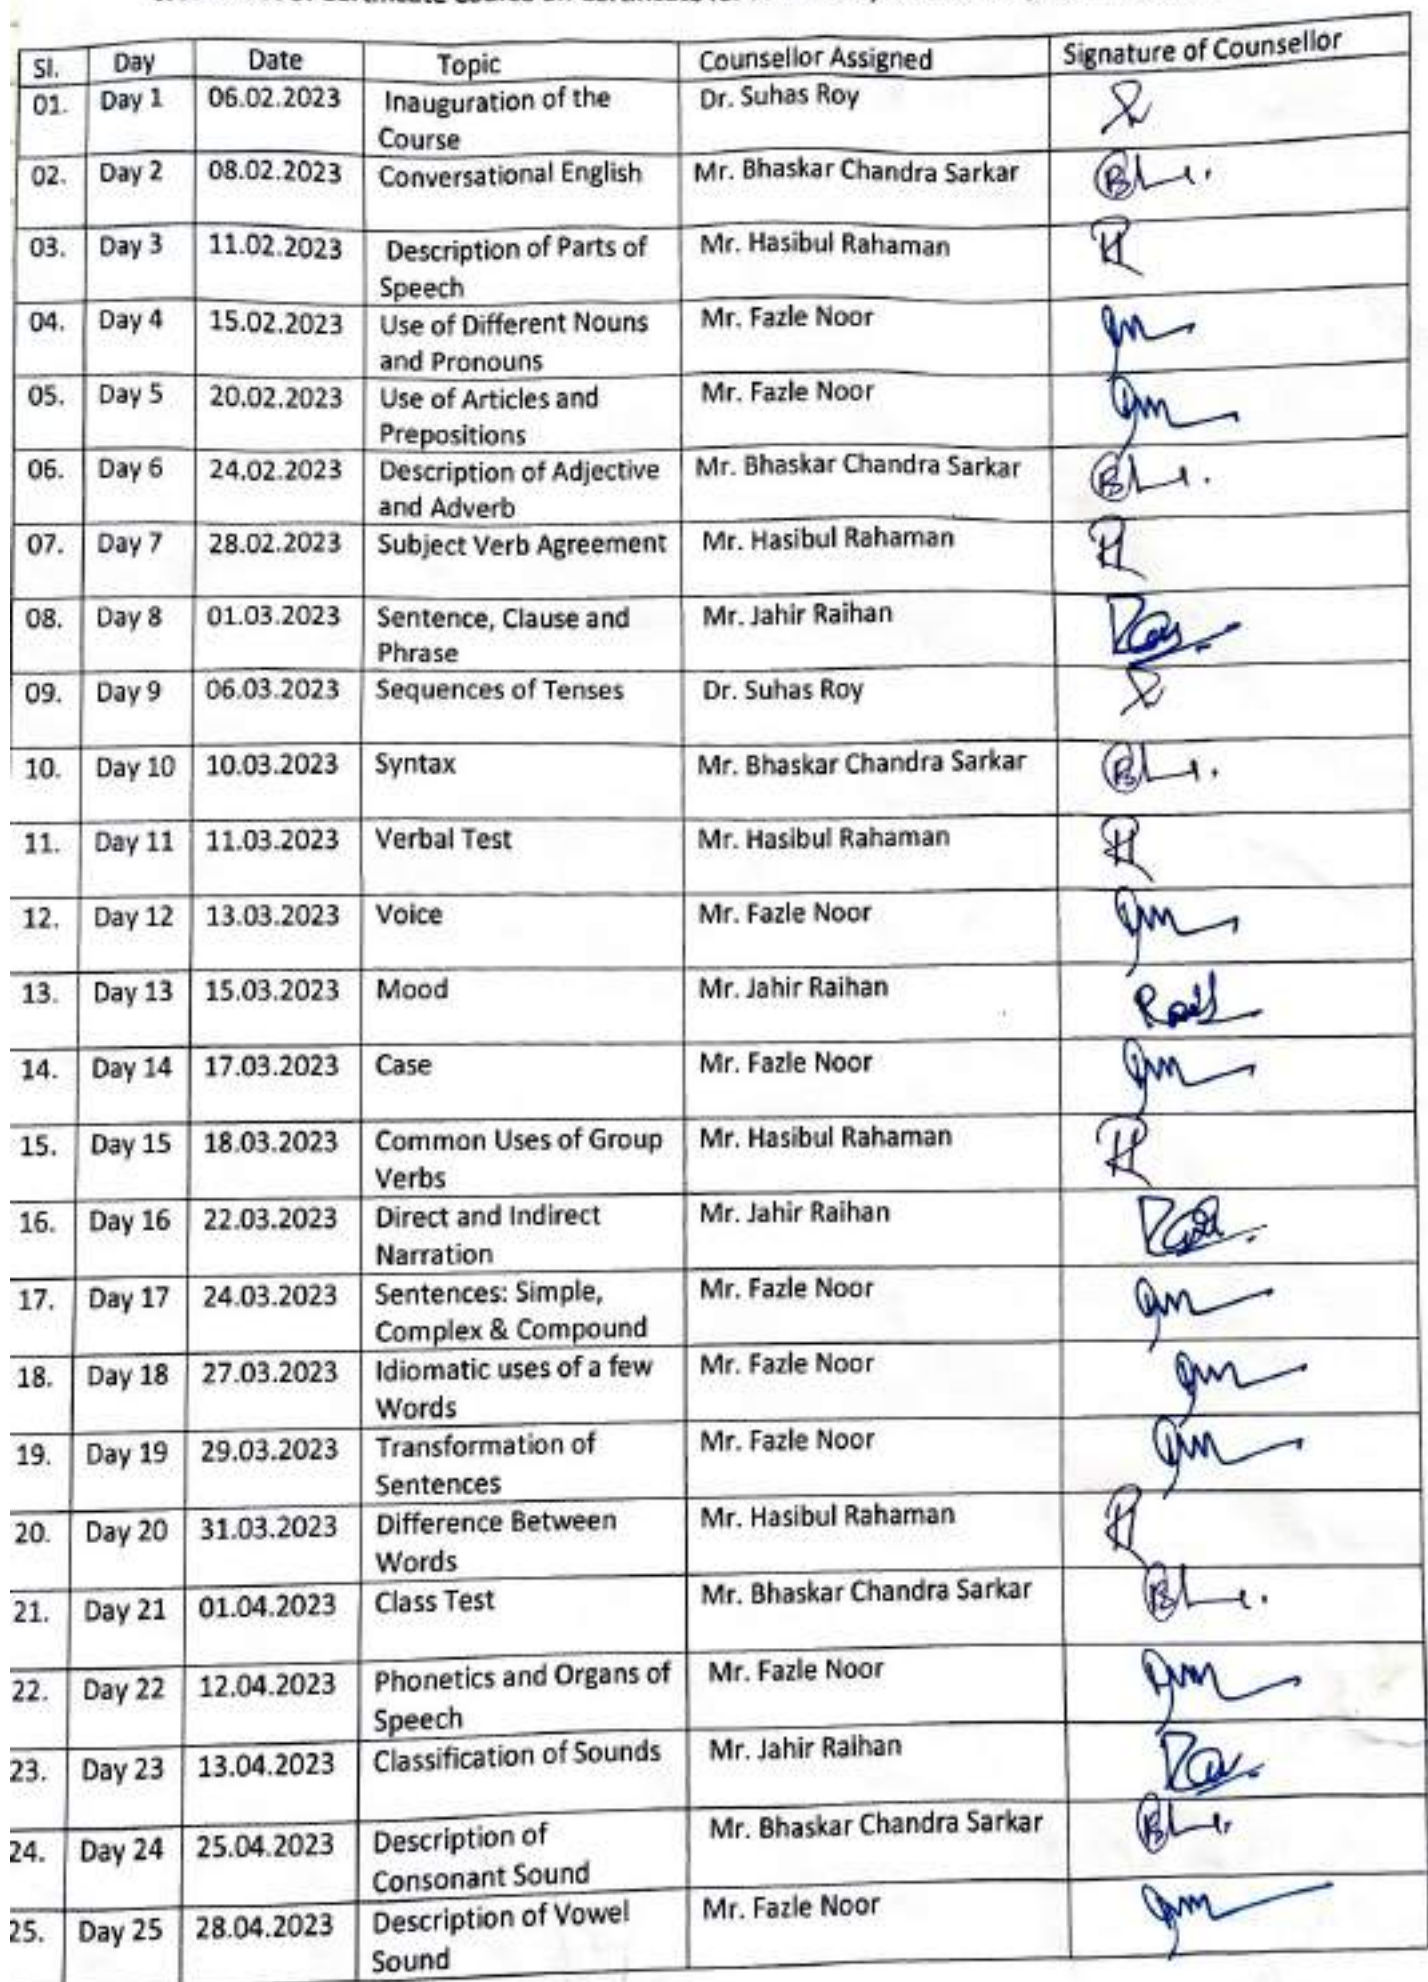 Sl. Day Date Topic Counsellor Assigned Signature of Counsellor
01. Day 1 06.02.2023 Inauguration of the Dr. Suhas Roy
Course
02. Day 2 08.02.2023 Conversational English Mr. Bhaskar Chandra Sarkar
03. Day 3 11.02.2023 Description of Parts of Mr. Hasibul Rahaman
Speech
04. Day 4 15.02.2023 Use of Different Nouns Mr. Fazle Noor
and Pronouns
05. Day 5 20.02.2023 Use of Articles and Mr. Fazle Noor
Prepositions
06. Day 6 24.02.2023 Description of Adjective Mr. Bhaskar Chandra Sarkar
and Adverb
07. Day 7 28.02.2023 Subject Verb Agreement Mr. Hasibul Rahaman
08. Day 8 01.03.2023 Sentence, Clause and Mr. Jahir Raihan
Phrase
09. Day 9 06.03.2023 Sequences of Tenses Dr. Suhas Roy
10. Day 10 10.03.2023 Syntax Mr. Bhaskar Chandra Sarkar
11. Day 11 11.03.2023 Verbal Test Mr. Hasibul Rahaman
12. Day 12 13.03.2023 Voice Mr. Fazle Noor
13. Day 13 15.03.2023 Mood Mr. Jahir Raihan
14. Day 14 17.03.2023 Case Mr. Fazle Noor
15. Day 15 18.03.2023 Common Uses of Group Mr. Hasibul Rahaman
Verbs
16. Day 16 22.03.2023 Direct and Indirect Mr. Jahir Raihan
Narration
17. Day 17 24.03.2023 Sentences: Simple, Mr. Fazle Noor
Complex & Compound
18. Day 18 27.03.2023 Idiomatic uses of a few Mr. Fazle Noor
Words
19. Day 19 29.03.2023 Transformation of Mr. Fazle Noor
Sentences
20. Day 20 31.03.2023 Difference Between Mr. Hasibul Rahaman
Words
21. Day 21 01.04.2023 Class Test Mr. Bhaskar Chandra Sarkar
22. Day 22 12.04.2023 Phonetics and Organs of Mr. Fazle Noor
Speech
23. Day 23 13.04.2023 Classification of Sounds Mr. Jahir Raihan
24. Day 24 25.04.2023 Description of Mr. Bhaskar Chandra Sarkar
Consonant Sound
25. Day 25 28.04.2023 Description of Vowel Mr. Fazle Noor
Sound